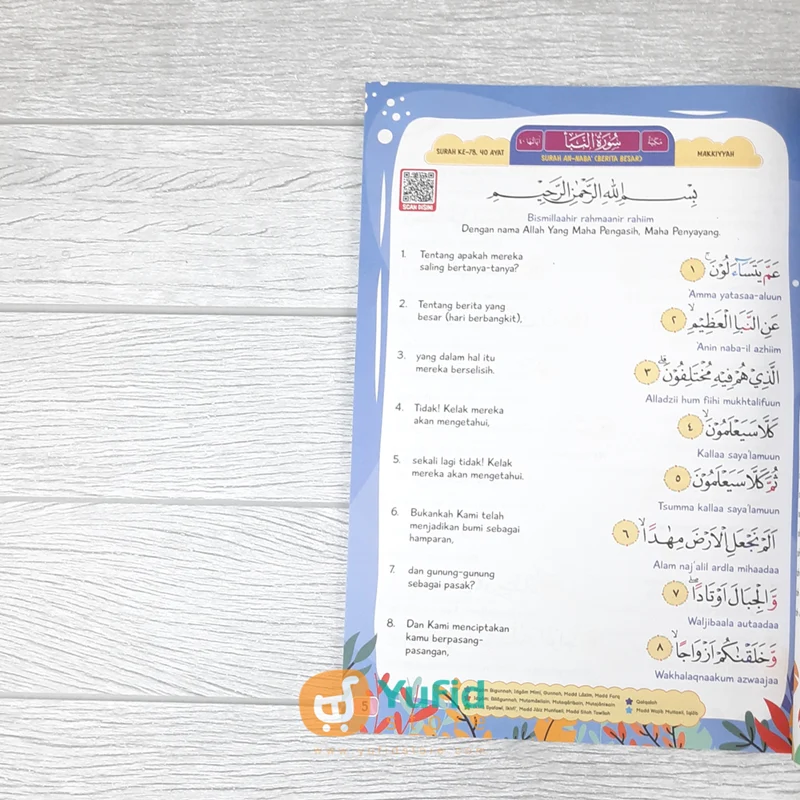 SURAH KE-78, 40 AYAT
سُورَةُ النَّبَأ
مَكِّيَّة
SURAH AN-NABA' (BERITA BESAR)
MAKKIYYAH
SCAN DISINI
بِسْمِ اللهِ الرَّحْمٰنِ الرَّحِيْمِ
Bismillaahir rahmaanir rahiim
Dengan nama Allah Yang Maha Pengasih, Maha Penyayang.
1. Tentang apakah mereka
saling bertanya-tanya?
عَمَّ يَتَسَاۤءَلُوْنَۚ ١
'Amma yatasaa-aluun
2. Tentang berita yang
besar (hari berbangkit),
عَنِ النَّبَاِ الْعَظِيْمِۙ ٢
'Anin naba-il azhiim
3. yang dalam hal itu
mereka berselisih.
الَّذِيْ هُمْ فِيْهِ مُخْتَلِفُوْنَۗ ٣
Alladzii hum fiihi mukhtalifuun
4. Tidak! Kelak mereka
akan mengetahui,
كَلَّا سَيَعْلَمُوْنَۙ ٤
Kallaa saya'lamuun
5. sekali lagi tidak! Kelak
mereka akan mengetahui.
ثُمَّ كَلَّا سَيَعْلَمُوْنَ ٥
Tsumma kallaa saya'lamuun
6. Bukankah Kami telah
menjadikan bumi sebagai
hamparan,
اَلَمْ نَجْعَلِ الْاَرْضَ مِهٰدًاۙ ٦
Alam naj'alil ardla mihaadaa
7. dan gunung-gunung
sebagai pasak?
وَّالْجِبَالَ اَوْتَادًاۖ ٧
Waljibaala autaadaa
8. Dan Kami menciptakan
kamu berpasang-
pasangan,
وَّخَلَقْنٰكُمْ اَزْوَاجًاۙ ٨
Wakhalaqnaakum azwaajaa
5
Yufid
Qalqalah